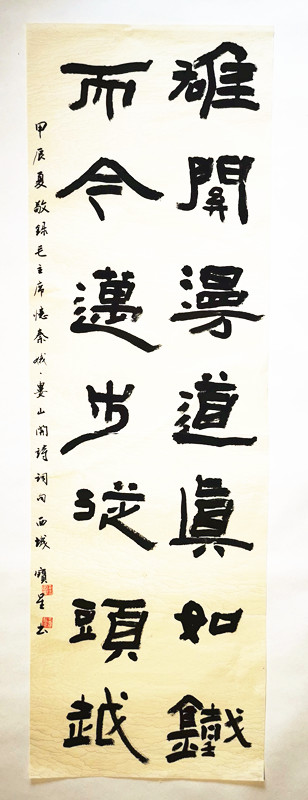 雄關漫道真如鐵
而今邁步從頭越
甲辰夏敬錄毛主席憶秦娥·婁山關詩詞句 西城 寶星书